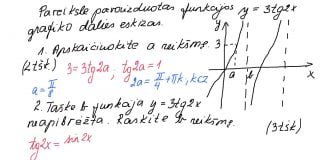 Paveiksle pavaizduotas funkcijos y = 3tg2x
grafiko dalies eskizas.
1. Apskaičiuokite a reikšmę.
(2 tšk) 3 = 3tg2a, tg2a = 1
a = π/8 2a = π/4 + πk, k∈z
2. Taške b funkcija y = 3tg2x
neapibrėžta. Raskite b reikšmę.
(3 tšk)
tg2x = sin2x
y
3
a b x